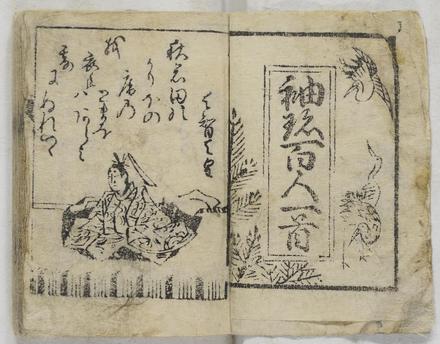 袖珎百人一首
天智天皇
秋の田の
かりほの
庵乃
とまを
あらみ
我
衣手ハ
露にぬれつゝ